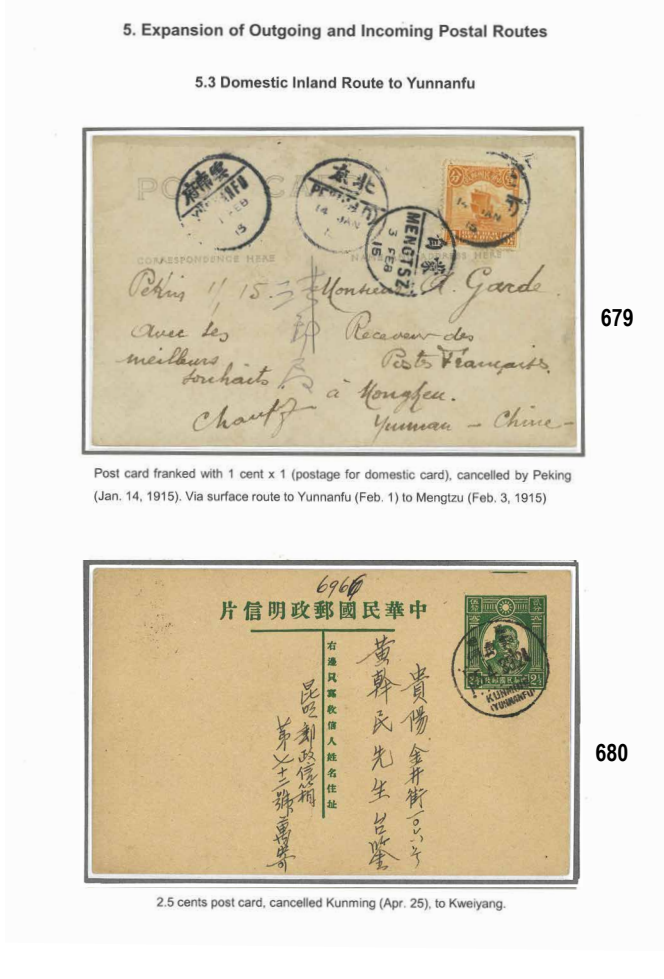 5. Expansion of Outgoing and Incoming Postal Routes
5.3 Domestic Inland Route to Yunnanfu
雲南府
YUNNANFU
FEB
15
北京
14 JAN
MENGTSZ
3 FEB
15
14 JAN
15
CORRESPONDENCE HERE
Pekin 1/1, 15.
Avec les
meilleurs
souhaits
Monsieur A. Garde
Receveur des
Postes Françaises
à Mongtseu.
Yunnan - Chine -
679
Post card franked with 1 cent x 1 (postage for domestic card), cancelled by Peking
(Jan. 14, 1915). Via surface route to Yunnanfu (Feb. 1) to Mengtzu (Feb. 3, 1915)
片信明政郵國民華中
右邊只寫收信人姓名住址
貴陽金井街一〇六号
黄幹民先生台鑒
昆明郵政信箱
第七十二號萬寄
KUNMING
(YUNNANFU)
680
2.5 cents post card, cancelled Kunming (Apr. 25), to Kweiyang.